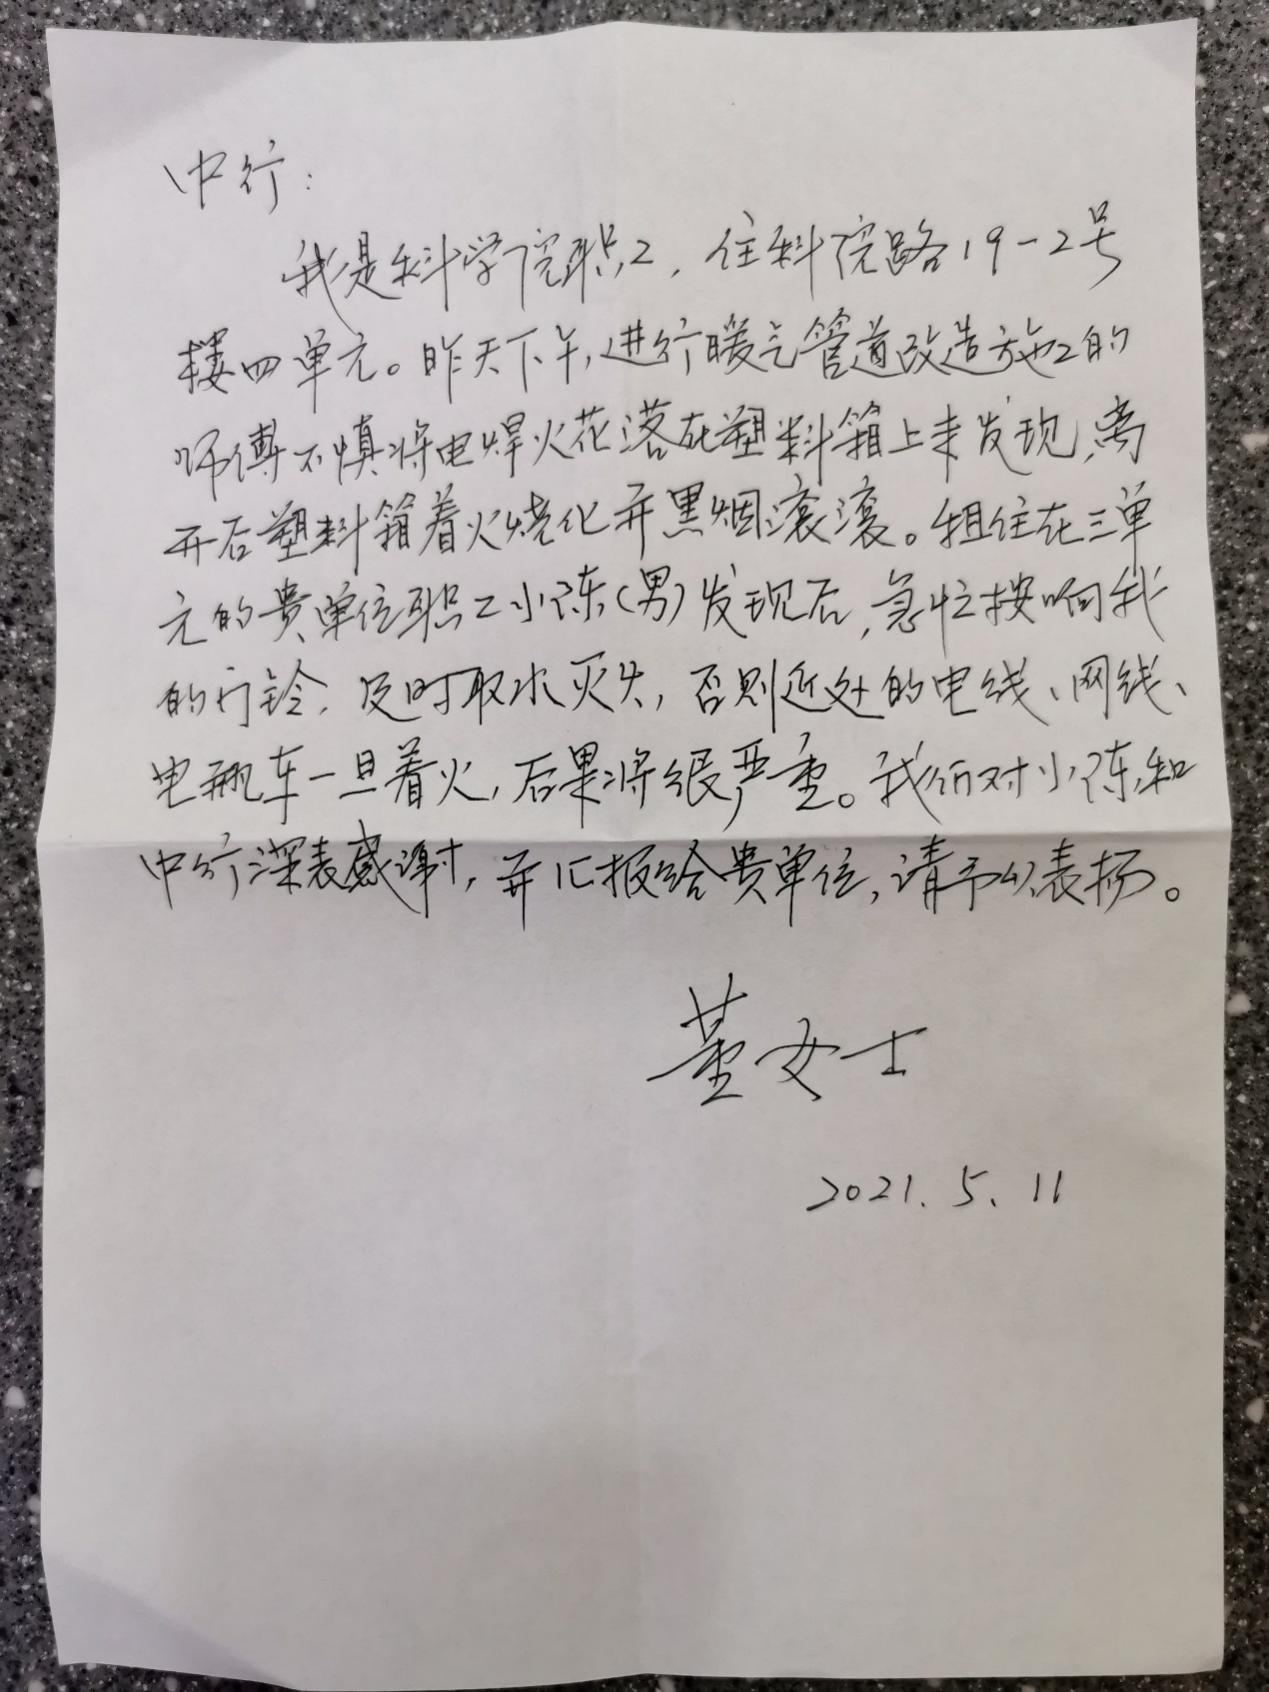 中行：
我是科学院职工，住科院路19-2号
楼四单元。昨天下午，进行暖气管道改造施工的
师傅不慎将电焊火花落在塑料箱上未发现，离
开后塑料箱着火烧化并黑烟滚滚。租住在三单
元的贵单位职工小陈（男）发现后，急忙按响我
的门铃，及时取水灭火，否则近处的电线、网线、
电瓶车一旦着火，后果将很严重。我们对小陈和
中行深表感谢，并汇报给贵单位，请予以表扬。
董女士
2021.5.11